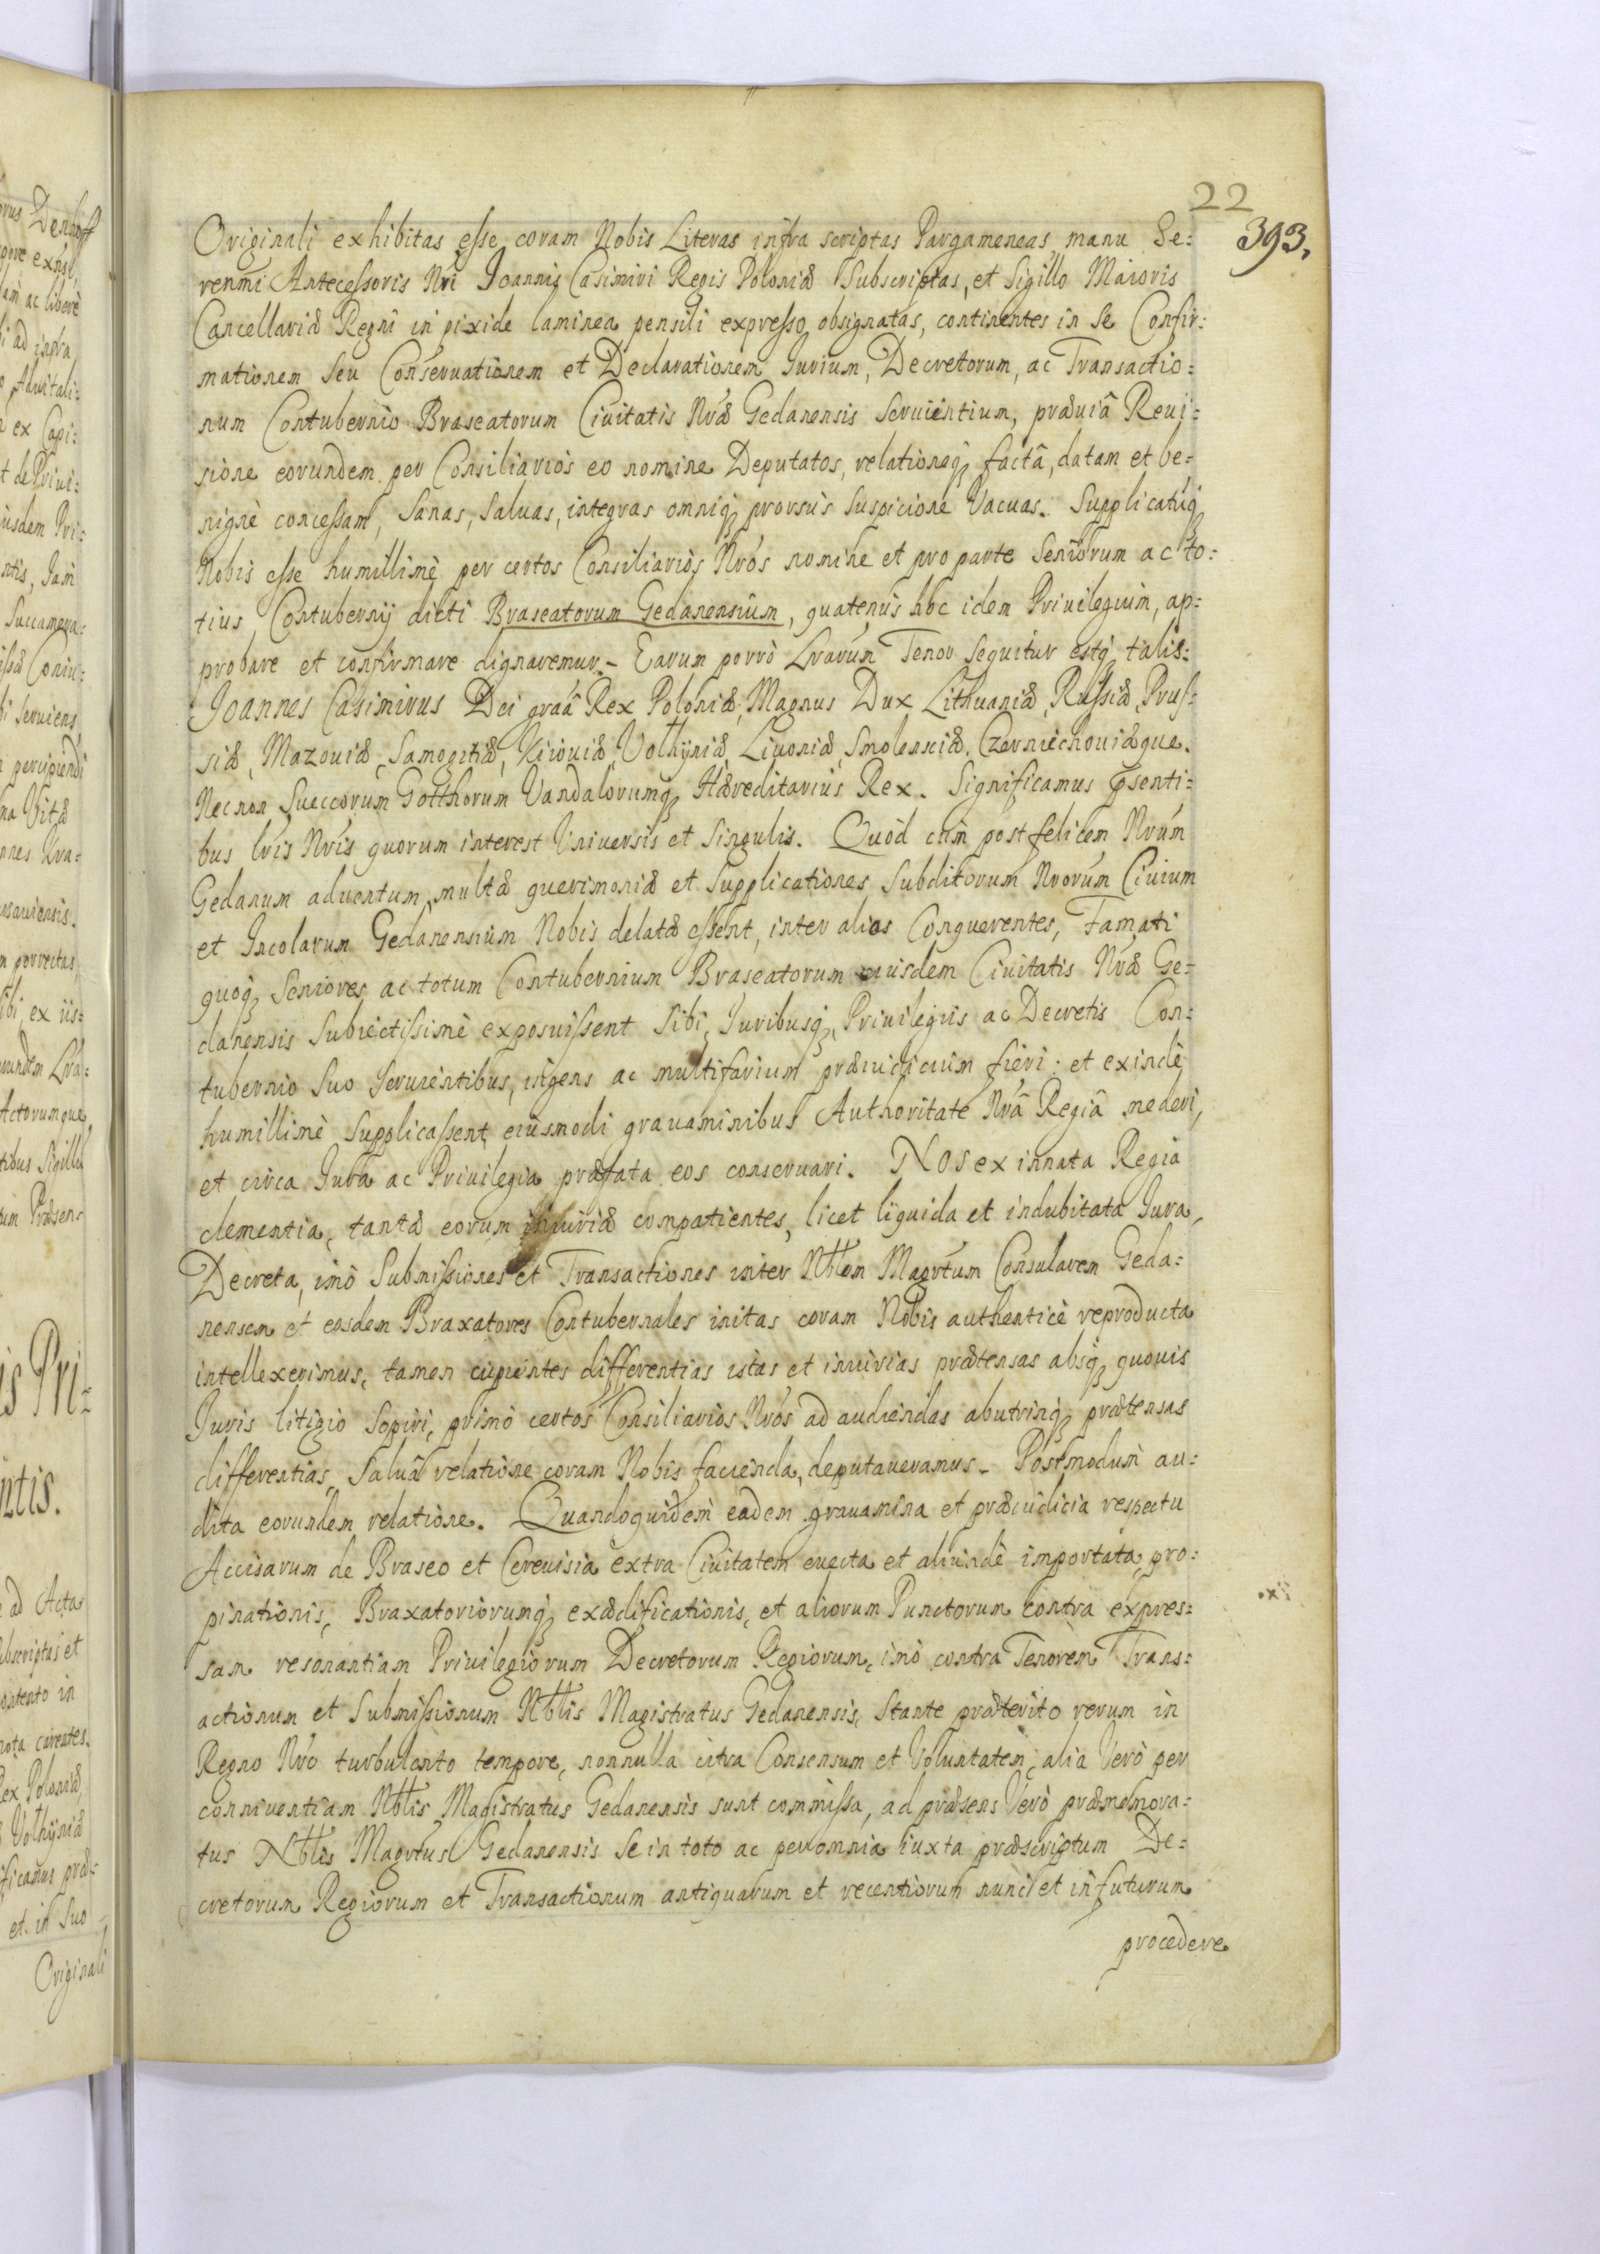 22
393.
Originali exhibitas esse coram Nobis Literas infra scriptas Pargameneas manu Se:
renmi Antecessoris Nri Joannis Casimiri Regis Poloniæ Subscriptas, et Sigillo Maioris
Cancellariæ Regni in pixide laminea pensili expresso obsignatas, continentes in se Confir:
mationem seu Conservationem et Declarationem Jurium, Decretorum, ac Transactio:
num Contubernio Braseatorum Civitatis Nræ Gedanensis servientium, præviâ Revi:
sione eorundem per Consiliarios eo nomine Deputatos, relationeq3 factâ, datam et be:
nignè concessam, Sanas, Salvas, integras omniq3 prorsùs suspicione Vacuas. Supplicatúq3
Nobis esse humillimè per certos Consiliarios Nrós nomine et pro parte Seniorum ac to:
tius Contubernij dicti Braseatorum Gedanensium, quatenùs hoc idem Privilegium, ap:
probare et confirmare dignaremur. Earum porrò Lrarum Tenor sequitur estq3 talis:
Joannes Casimirus Dei graâ Rex Poloniæ, Magnus Dux Lithuaniæ, Russiæ, Prus:
siæ, Mazoviæ, Samogitiæ, Kijoviæ, Volhyniæ, Livoniæ, Smolensciæ, Czerniechoviæque.
Necnon Sueccorum Gotthorum Vandalorumq3 Hæreditarius Rex. Significamus psenti:
bus lris Nris quorum interest Universis et singulis. Quòd cùm post felicem Nrúm
Gedanum adventum, multæ querimoniæ et Supplicationes Subditorum Nrorúm Civium
et Incolarum Gedanensium Nobis delatæ essent, inter alios Conquerentes, Famati
quoq3 Seniores ac totum Contubernium Braseatorum eiusdem Civitatis Nræ Ge:
danensis Subiectissimè exposuissent sibi, Juribusq3, Privilegiis ac Decretis Con:
tubernio Suo servientibus, ingens ac multifarium præiudicium fieri: et exindè
humillimè Supplicassent, eiusmodi gravaminibus Authoritate Nrâ Regiâ mederi,
et circa Jura ac Privilegia præfata eos conservari. Nos ex innata Regia
clementia, tantæ eorum iniuriæ compatientes, licet liquida et indubitata Jura,
Decreta, imò Submissiones et Transactiones inter Nblem Magrtum Consularem Geda:
nensem et eosdem Braxatores Contubernales initas coram Nobis authenticè reproducta
intellexerimus, tamen cupientes differentias istas et iniurias prætensas absq3 quovis
Juris litigio sopiri, primò certos Consiliarios Nrós ad audiendas abutrinq3 prætensas
differentias, Salvâ relatione coram Nobis facienda, deputaveramus. Postmodùm au:
dita eorundem relatione. Quandoquidem eadem gravamina et præiudicia respectu
Accisarum de Braseo et Cerevisia extra Civitatem evecta et aliundè importata, pro:
pinationis, Braxatoriorumq3 exædificationis, et aliorum Punctorum contra expres:
sam resonantiam Privilegiorum Decretorum Regiorum, imò contra Tenorem Trans:
actionum et Submissionum Nblis Magistratus Gedanensis, Stante præterito rerum in
Regno Nro turbulento tempore, nonnulla citra Consensum et Voluntatem, alia Verò per
conniventiam Nblis Magistratus Gedanensis sunt commissa, ad præsens Verò præmemora:
tus Nblis Magrtus Gedanensis se in toto ac per omnia iuxta præscriptum De:
cretorum Regiorum et Transactionum antiquarum et recentiorum nunc et in futurum
procedere